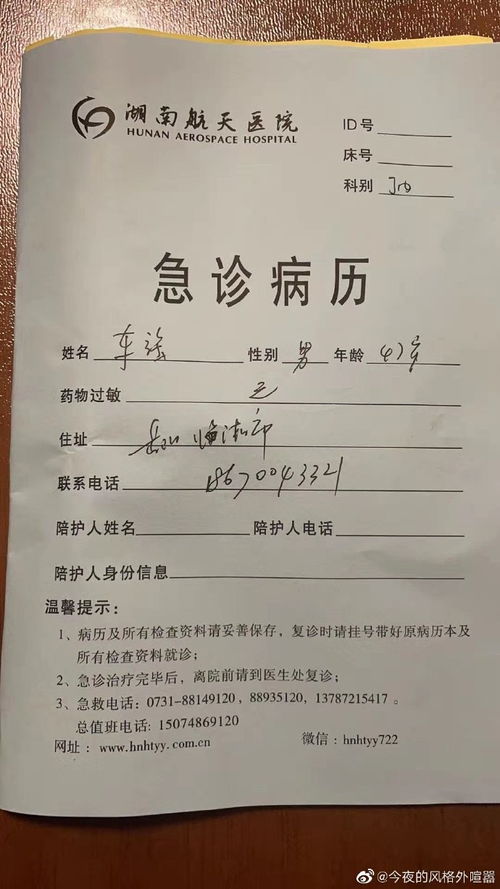 湖南航天医院
HUNAN AEROSPACE HOSPITAL
ID号
床号
科别
急诊病历
姓名 车 性别 男 年龄 47岁
药物过敏 无
住址 临湘市
联系电话 18670043321
陪护人姓名 陪护人电话
陪护人身份信息
温馨提示：
1、病历及所有检查资料请妥善保存，复诊时请挂号带好原病历本及
所有检查资料就诊；
2、急诊治疗完毕后，离院前请到医生处复诊；
3、急救电话：0731-88149120, 88935120, 13787215417 。
总值班电话: 15074869120
网址： www.hnhtyy.com.cn 微信：hnhtyy722
@今夜的风格外喧嚣